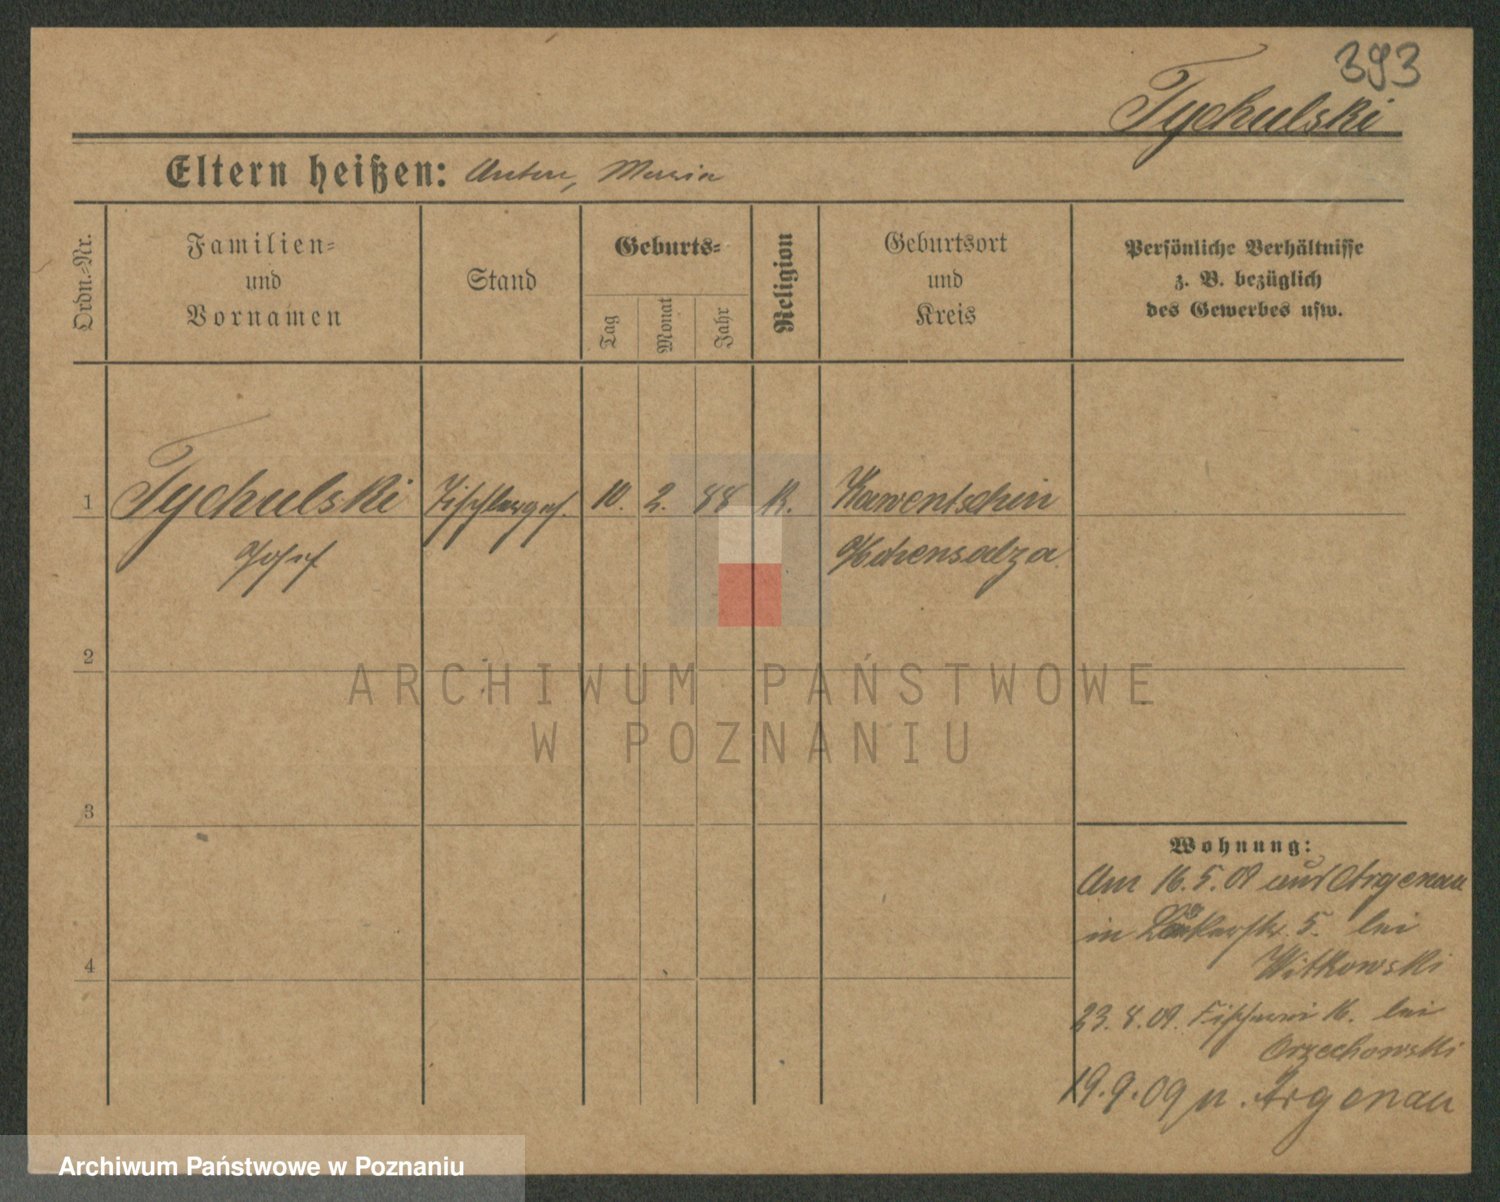 393
Tychulski
Eltern heißen: Anton, Maria
Ordn.-Nr.
Familien-
und
Vornamen
Stand
Geburts-
Tag
Monat
Jahr
Religion
Geburtsort
und
Kreis
Persönliche Verhältnisse
z. B. bezüglich
des Gewerbes usw.
1 Tychulski Tischlerges. 10. 2. 88 K. Kawentschin
Josef Hohensalza
2
ARCHIWUM PAŃSTWOWE
W POZNANIU
3
4
Wohnung:
Am 16.5.09 aus Argenau
in 5. bei
Witkowski
23.8.09. Fischerei 16. bei
Orzechowski
19.9.09 n. Argenau
Archiwum Państwowe w Poznaniu